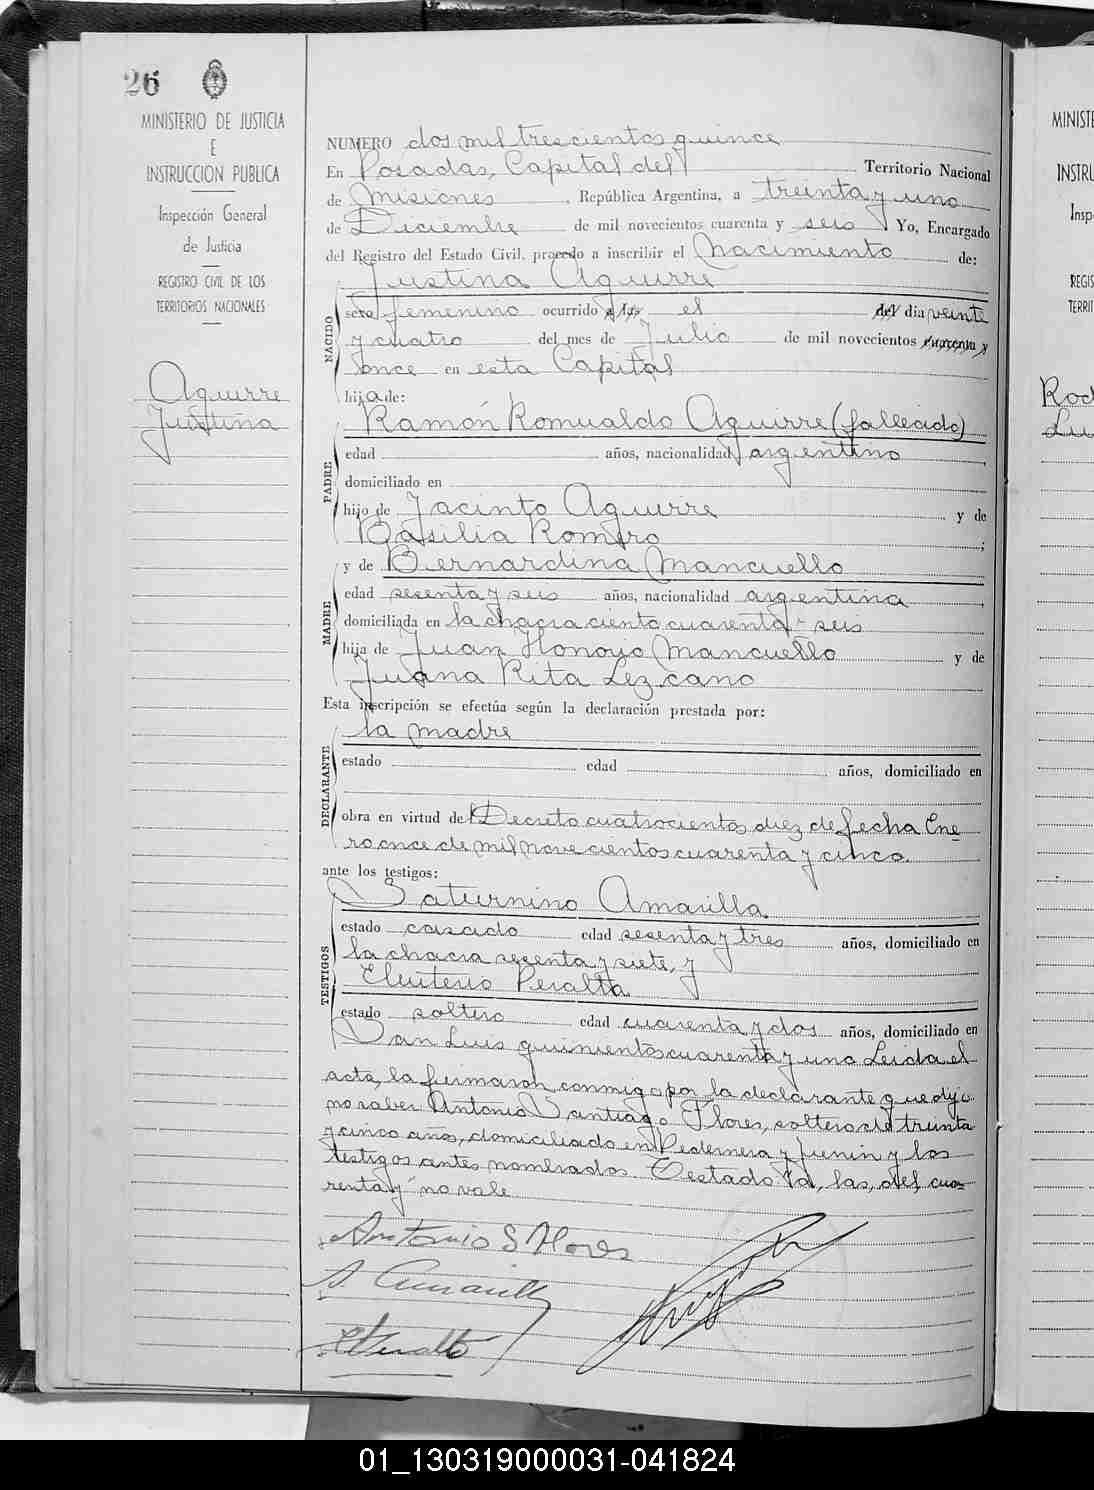 26
MINISTERIO DE JUSTICIA
E
INSTRUCCION PUBLICA
Inspección General
de Justicia
REGISTRO CIVIL DE LOS
TERRITORIOS NACIONALES
Aguirre
Justina
NUMERO dos mil trescientos quince
En Posadas, Capital del Territorio Nacional
de Misiones, República Argentina, a treinta y uno
de Diciembre de mil novecientos cuarenta y seis Yo, Encargado
del Registro del Estado Civil, procedo a inscribir el Nacimiento de:
Justina Aguirre
NACIDO
sexo femenino ocurrido a las el del dia veinte
y cuatro del mes de Julio de mil novecientos cuarenta y
once en esta Capital
hija de:
Ramón Romualdo Aguirre (fallecido)
PADRE
edad años, nacionalidad argentino
domiciliado en
hijo de Jacinto Aguirre y de
Basilia Romero ;
y de Bernardina Mancuello
MADRE
edad sesenta y seis años, nacionalidad argentina
domiciliada en la chacra ciento cuarenta y seis
hija de Juan Honorio Mancuello y de
Juana Rita Lezcano
Esta inscripción se efectúa según la declaración prestada por:
la madre
DECLARANTE
estado edad años, domiciliado en
obra en virtud del Decreto cuatrocientos diez de fecha Ene
ro once de mil novecientos cuarenta y cinco
ante los testigos:
Saturnino Amarilla
TESTIGOS
estado casado edad sesenta y tres años, domiciliado en
la chacra sesenta y siete, y
Eleuterio Peralta
estado soltero edad cuarenta y dos años, domiciliado en
San Luis quinientos cuarenta y uno Leida el
acta, la firmaron conmigo por la declarante que dijo
no saber Antonio Santiago Flores, soltero de treinta
y cinco años, domiciliado en Pedernera y Junin y los
testigos antes nombrados. Testado "a, las, del, cua-
renta y" no vale
Antonio S Flores
S. Amarilla
E Peralta
MINISTE
INSTRU
Insp
REGIS
TERRIT
Rod
Lu
01_130319000031-041824